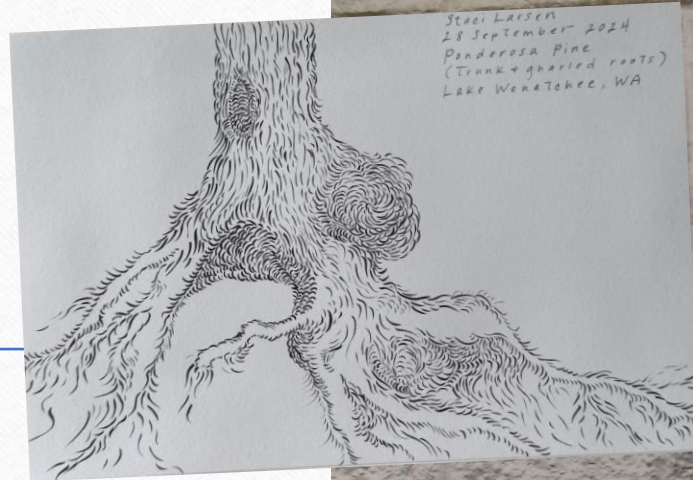 Staci Larsen
28 September 2024
Ponderosa Pine
(Trunk + gnarled roots)
Lake Wenatchee, WA